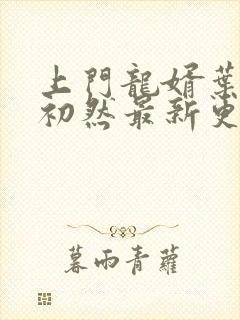 上門龍婿葉
初然最新更
暮雨青蘿